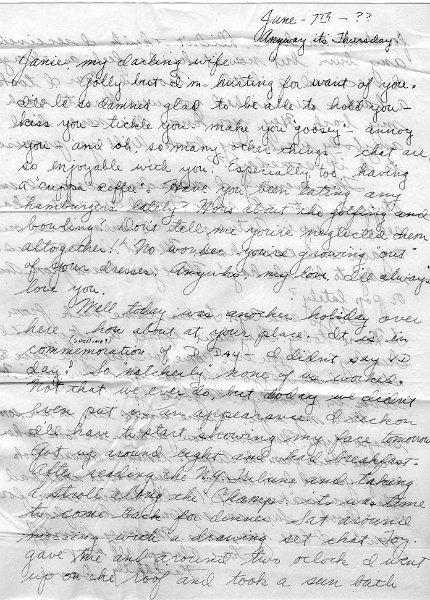 June - 7TH - ??
Anyway its Thursday
Janie my darling wife
Golly but I'm hurting for want of you.
I'll be so damned glad to be able to hold you -
kiss you - tickle you - make you goosey - annoy
you - and oh! so many other things that are
so enjoyable with you. Especially too having
a cuppa coffee. Have you been eating any
hamburgers lately? Hows about the golfing and
bowling? Don't tell me you're neglected them
altogether!! No wonder you're growing out
of your dresses. Anywho - my love. I'll always
love you.
Well today was another holiday over
here - how about at your place. It is in
(spelling?)
commemoration of D Day - I didn't say VD
day! So natcherly none of us worked.
Not that we ever do but today we didn't
even put in an appearance. I reckon
I'll have to start showing my face tomorrow.
Got up around eight and had breakfast.
After reading the N.Y. Tribune and taking
a stroll along the Champs it was time
to come back for dinner. Sat around
messing with a drawing set that
gave me and around two oclock I went
up on the roof and took a sun bath